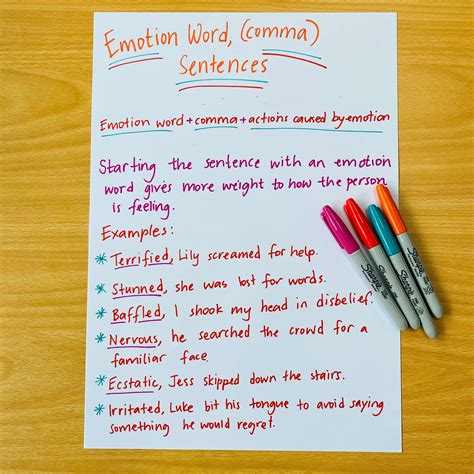 Emotion Word, (comma)
Sentences
Emotion word + comma + actions caused by emotion
Starting the sentence with an emotion
word gives more weight to how the person
is feeling.
Examples:
* Terrified, Lily screamed for help.
* Stunned, she was lost for words.
* Baffled, I shook my head in disbelief.
* Nervous, he searched the crowd for a
familiar face.
* Ecstatic, Jess skipped down the stairs.
* Irritated, Luke bit his tongue to avoid saying
something he would regret.
Sharpie
Sharpie
Sharpie
Sharpie